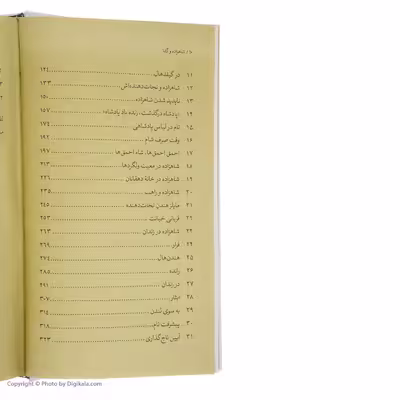 ۱۰ / شاهزاده و گدا
۱۱ در گیلدهال ۱۲۴
۱۲ شاهزاده و نجات‌دهنده‌اش ۱۳۳
۱۳ ناپدید شدن شاهزاده ۱۵۰
۱۴ «پادشاه درگذشت، زنده باد پادشاه» ۱۵۷
۱۵ تام در لباس پادشاهی ۱۷۴
۱۶ وقت صرف شام ۱۹۲
۱۷ احمق احمق‌ها، شاه احمق‌ها ۱۹۷
۱۸ شاهزاده در معیت ولگردها ۲۱۳
۱۹ شاهزاده در خانهٔ دهقانان ۲۲۱
۲۰ شاهزاده و راهب ۲۳۵
۲۱ مایلز هندن نجات‌دهنده ۲۴۵
۲۲ قربانی خیانت ۲۵۱
۲۳ شاهزاده در زندان ۲۶۴
۲۴ فرار ۲۶۹
۲۵ هندن‌هال ۲۷۴
۲۶ رانده ۲۸۵
۲۷ در زندان ۲۹۱
۲۸ ایثار ۳۰۷
۲۹ به سوی لندن ۳۱۴
۳۰ پیشرفت تام ۳۱۸
۳۱ آیین تاج‌گذاری ۳۲۳
Copyright © Photo by Digikala.com